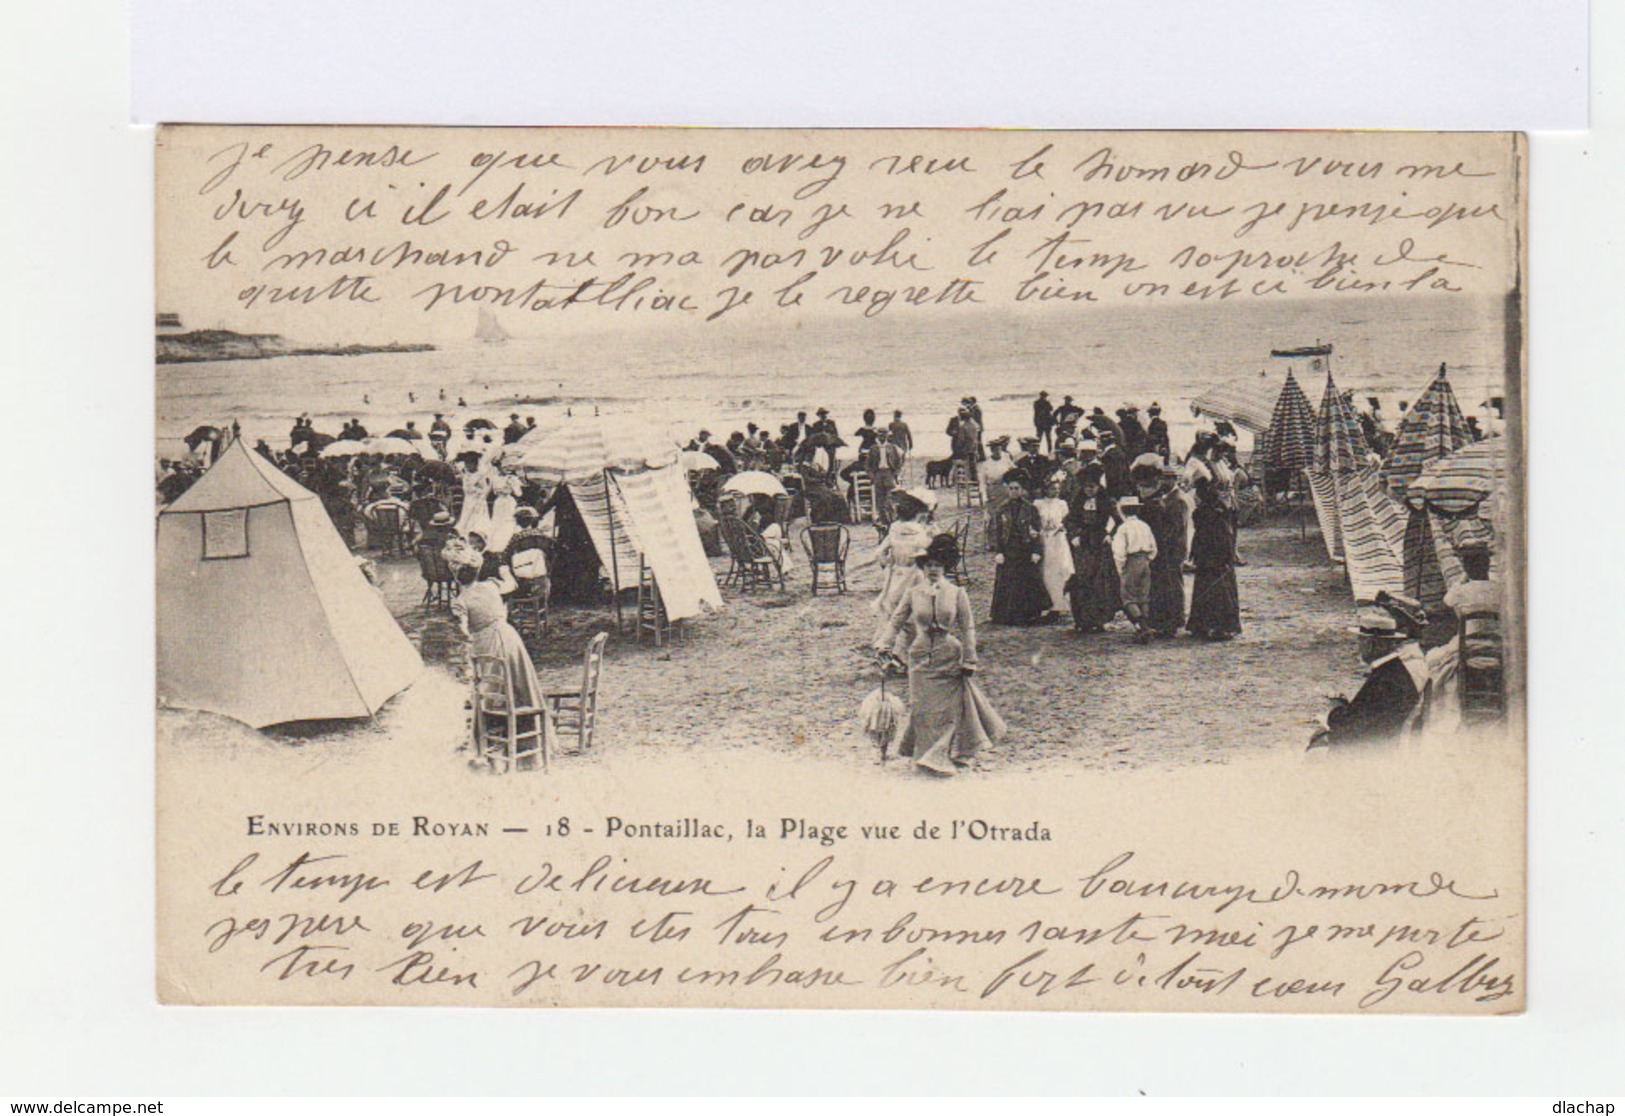 je pense que vous avez reçu le homard vous me
direz ci il etait bon car je ne lai pas vu je pense que
le marchand ne ma pas volé le temp saproche de
quitte pontatlliac je le regrette bien on est ci bien la
ENVIRONS DE ROYAN — 18 - Pontaillac, la Plage vue de l'Otrada
le temp est delicieux il y a encore baucoup de monde
jespere que vous etes tous en bonnes sante moi je me porte
tres bien je vous embrasse bien fort de tout cœur
www.delcampe.net
dlachap